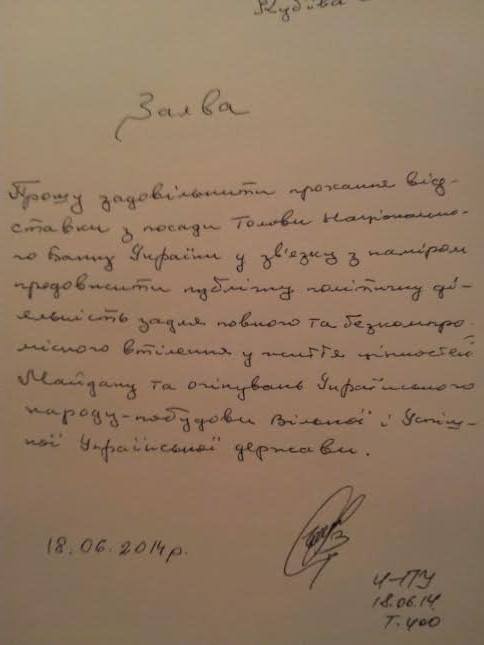 Кубіва
Заява
Прошу задовільнити прохання від-
ставки з посади Голови Національно-
го Банку України у зв'язку з наміром
продовжити публічну політичну ді-
яльність задля повного та безкомпро-
місного втілення у життя цінностей
Майдану та очікувань Українського
народу-побудови Вільної і Успіш-
ної Української держави.
18.06.2014р.
18.06.14
Т. 400